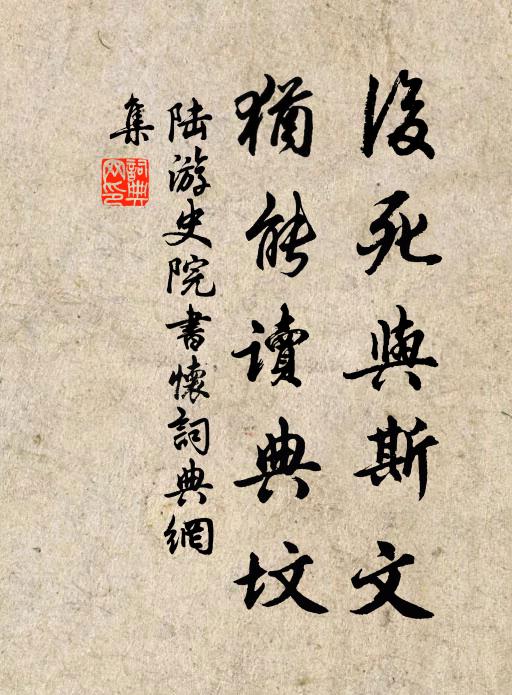 後死與斯文
猶能讀典墳
陆游史院書懷詞典網
集
詞典網印